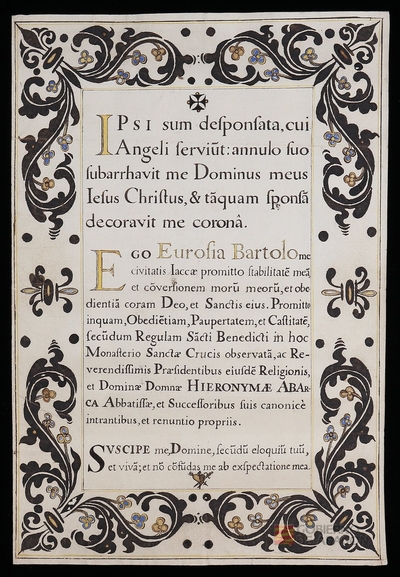 IPSI sum desponsata, cui
Angeli serviūt: annulo suo
subarrhavit me Dominus meus
Iesus Christus, & tāquam sponsā
decoravit me coronâ.
EGO Eurosia Bartolome
civitatis Iaccæ promitto stabilitatē meā
et cōversionem morū meorū, et obe
dientiā coram Deo, et Sanctis eius. Promitto
inquam, Obediētiam, Paupertatem, et Castitatē,
secūdum Regulam Sācti Benedicti in hoc
Monasterio Sanctæ Crucis observatā, ac Re-
verendissimis Præsidentibus eiusdē Religionis,
et Dominæ Domnæ HIERONYMÆ ABAR-
CA Abbatissæ, et Successoribus suis canonicè
intrantibus, et renuntio propriis.
SVSCIPE me, Domine, secūdū eloquiū tuū,
et vivā; et nō cōfūdas me ab exspectatione mea.